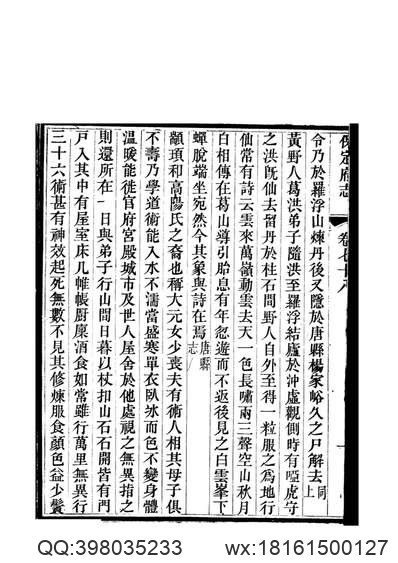 保定府志
卷七十八
令乃於羅浮山煉丹後又隱於唐縣楊家峪久之尸解去同上
黃野人葛洪弟子隨洪至羅浮結廬於沖虛觀側時有啞虎守
之洪旣仙去留丹於柱石間野人自外至得一粒服之爲地行
仙常有詩云雲來萬嶺動雲去天一色長嘯兩三聲空山秋月
白相傳在葛山導引胎息有年忽遊而不返後見之白雲峯下
蟬脫端坐宛然今其象與詩在焉唐縣志
顓頊和高陽氏之裔也稱大元女少喪夫有術人相其母子俱
不壽乃學道術能入水不濡當盛寒單衣臥氷而色不變身體
溫暖能徙官府宮殿城市及世人屋舍於他處視之無異指之
則還所在一日與弟子行山間日暮以杖扣山石石開皆有門
戸入其中有屋室床几帷帳廚廩酒食如常雖行萬里無異行
三十六術甚有神效起死無數不見其修煉服食顏色益少鬢
QQ:398035233
wx:18161500127